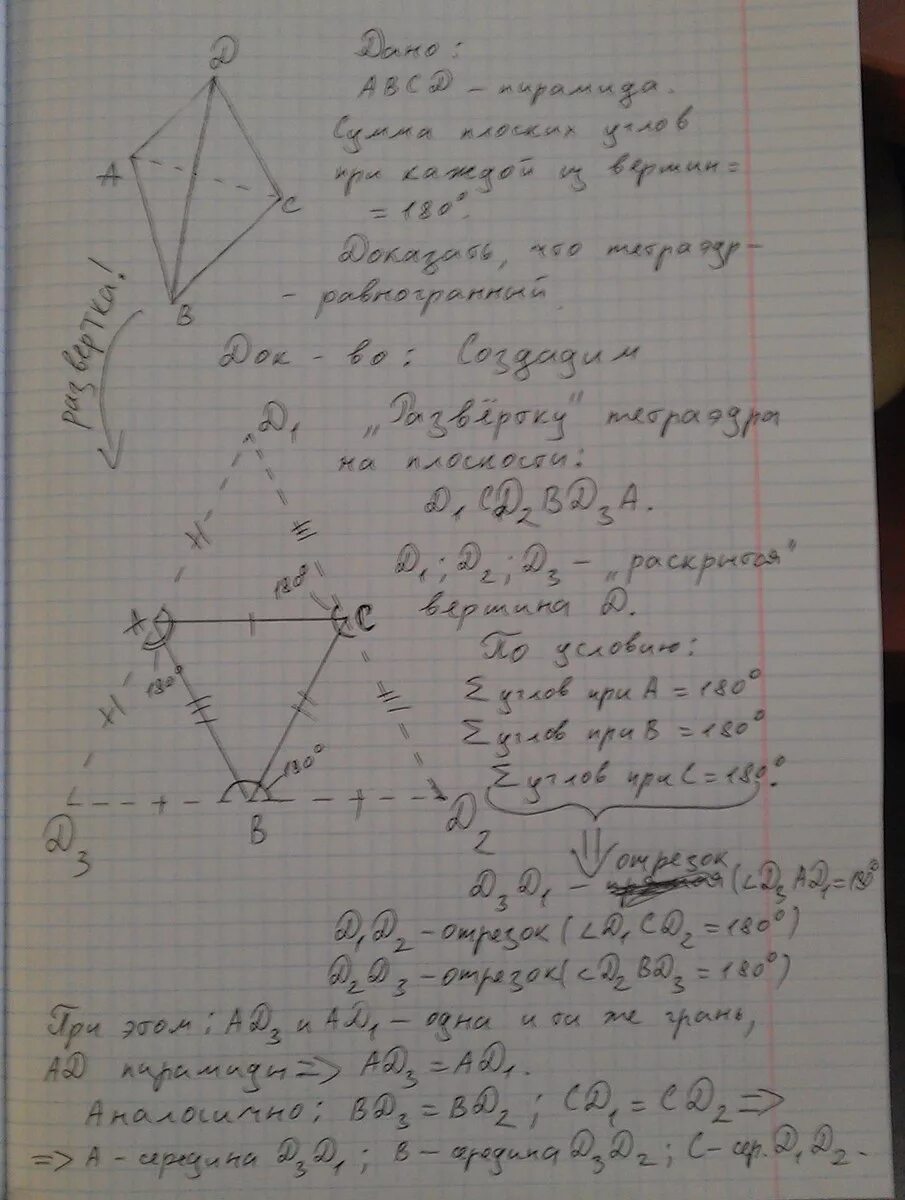 Дано:
ABCD - пирамида.
Сумма плоских углов
при каждой из вершин =
= 180°.
Доказать, что тетраэдр -
- равногранный.
D
A
C
B
развертка!
Док-во: Создадим
„Развёртку" тетраэдра
на плоскости:
D₁CD₂BD₃A.
D₁; D₂; D₃ - „раскрытая"
вершина D.
По условию:
Σ углов при A = 180°
Σ углов при B = 180°
Σ углов при C = 180°.
D₁
180°
A
C
180°
180°
D₃
B
D₂
D₃D₁ - отрезок (∠D₃AD₁ = 180°
D₁D₂ - отрезок (∠D₁CD₂ = 180°)
D₂D₃ - отрезок (∠D₂BD₃ = 180°)
При этом: AD₃ и AD₁ - одна и та же грань,
AD пирамиды => AD₃ = AD₁.
Аналогично: BD₃ = BD₂; CD₁ = CD₂ =>
=> A - середина D₃D₁; B - середина D₃D₂; C - сер. D₁D₂.